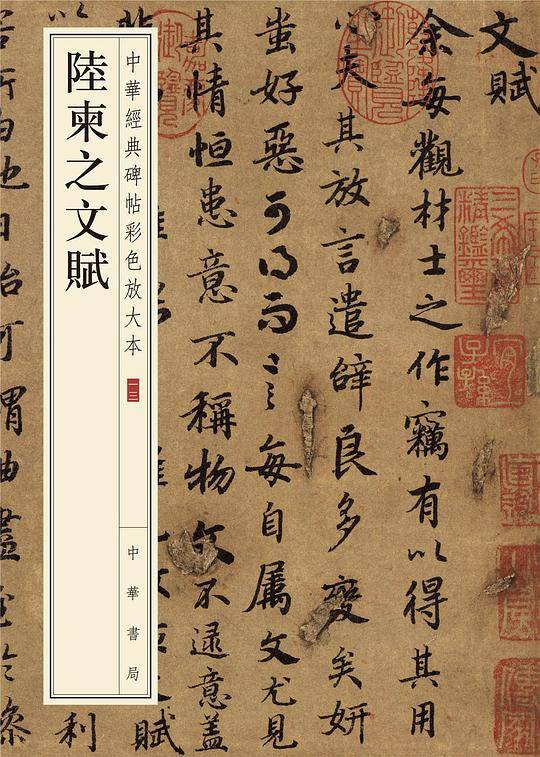 文賦
余每觀材士之作竊有以得其用
心夫其放言遣辭良多變矣妍
蚩好惡可得而言每自屬文尤見
其情恒患意不稱物文不逮意盖
賦
中華經典碑帖彩色放大本 一三
中華書局
陸柬之文賦
以
利
所由
日殆可謂曲盡
於操